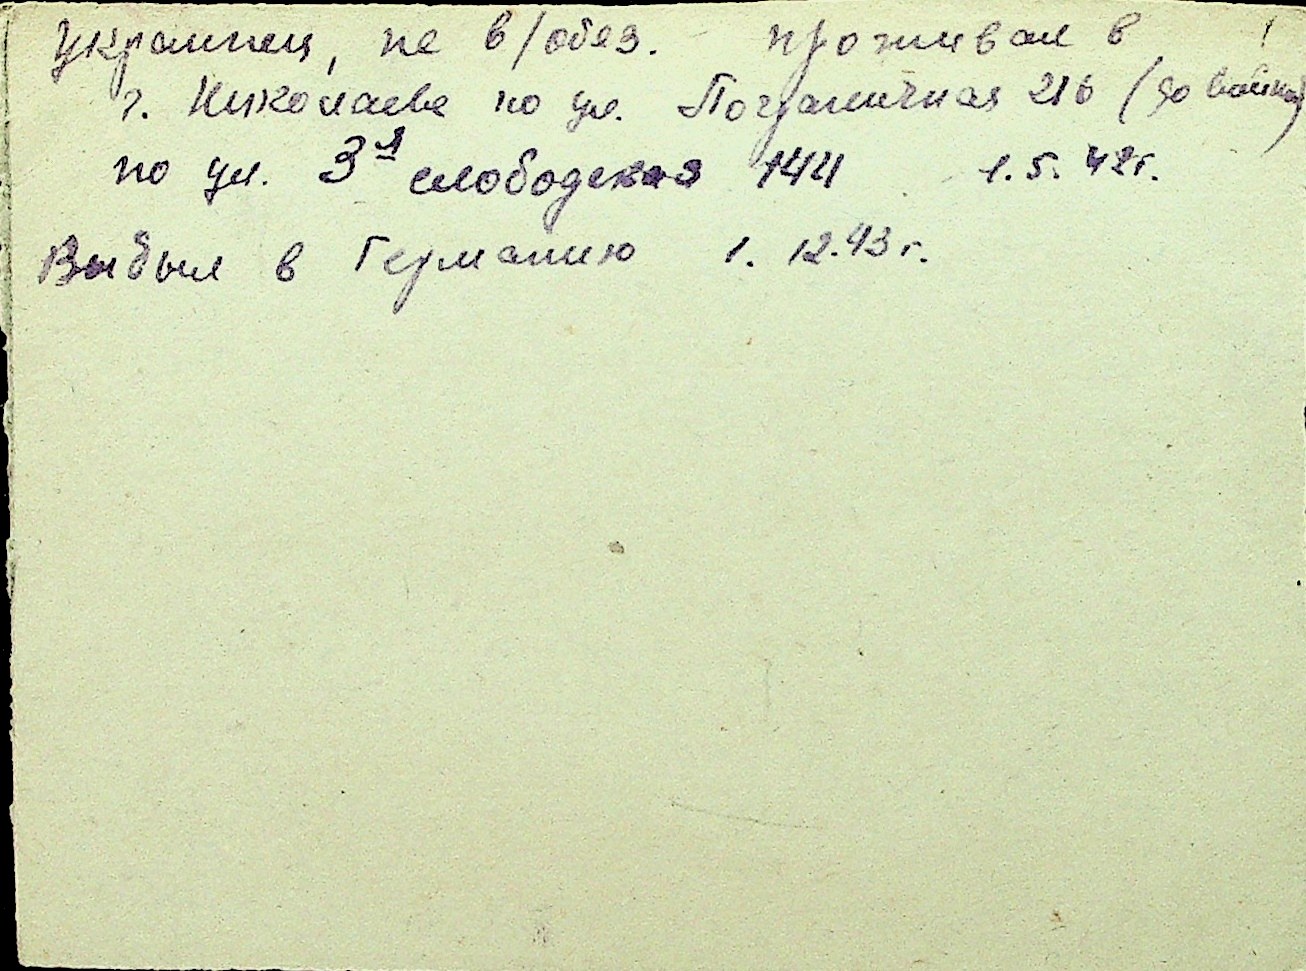 украинец, не в/обяз. проживал в
г. Николаеве по ул. Пограничная 216 (до войны)
по ул. 3я слободская 144 1.5.42г.
Выбыл в Германию 1.12.43г.